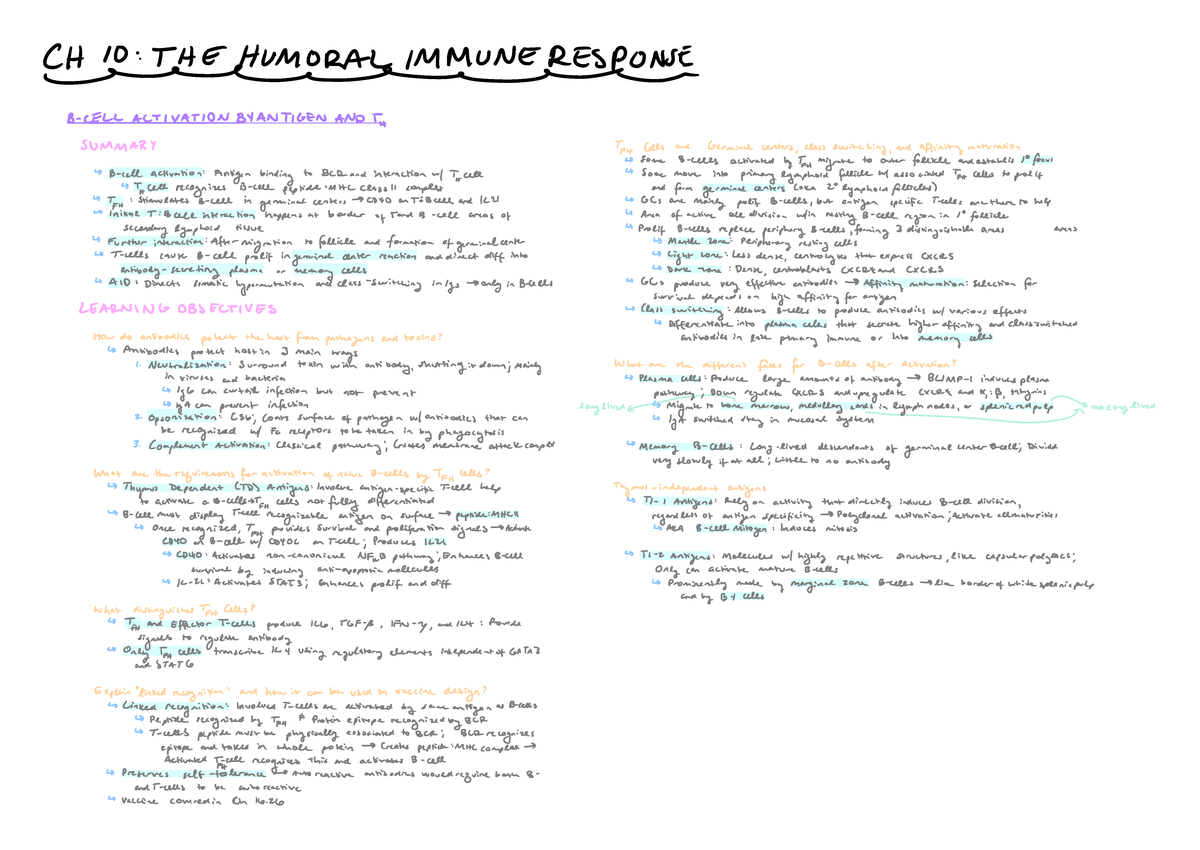 CH 10: THE HUMORAL IMMUNE RESPONSE
B-CELL ACTIVATION BY ANTIGEN AND TH
SUMMARY
↳ B-cell activation: Antigen binding to BCR and interaction w/ TH cell
↳ TH cell recognizes B-cell peptide:MHC class II complex
↳ TFH: Stimulates B-cell in germinal centers → CD40 on T:B cell and IL21
↳ Initial T:B cell interaction happens at border of T and B-cell areas of
secondary lymphoid tissue
↳ Further interaction: After migration to follicle and formation of germinal center
↳ T-cells cause B-cell prolif in germinal center reaction and direct diff into
antibody-secreting plasma or memory cells
↳ AID: Directs somatic hypermutation and class-switching in Igs → only in B-cells
LEARNING OBJECTIVES
How do antibodies protect the host from pathogens and toxins?
↳ Antibodies protect host in 3 main ways
1. Neutralization: Surround toxin with antibody, shutting it down; mainly
in viruses and bacteria
↳ IgG can curtail infection but not prevent
↳ IgA can prevent infection
2. Opsonization: C3b; Coats surface of pathogen w/ antibodies that can
be recognized w/ Fc receptors to be taken in by phagocytosis
3. Complement Activation: Classical pathway; Creates membrane attack complex
What are the requirements for activation of naive B-cells by TFH cells?
↳ Thymus Dependent (TD) Antigens: Involve antigen-specific T-cell help
to activate a B-cells → TFH cells not fully differentiated
↳ B-cell must display T-cell recognizable antigen on surface → peptide:MHCII
↳ Once recognized, TFH provides survival and proliferation signals → Activate
CD40 on B-cell w/ CD40L on T-cell; Produces IL21
↳ CD40: Activates non-canonical NFκB pathway; Enhances B-cell
survival by inducing anti-apoptotic molecules
↳ IL-21: Activates STAT3; Enhances prolif and diff
What distinguishes TFH Cells?
↳ TFH and Effector T-cells produce IL6, TGF-β, IFN-γ, and IL4: Provide
signals to regulate antibody
↳ Only TFH cells transcribe IL4 using regulatory elements independent of GATA3
and STAT6
Explain "linked recognition" and how it can be used in vaccine design?
↳ Linked recognition: Involved T-cells are activated by same antigen as B-cells
↳ Peptide recognized by TFH ≠ Protein epitope recognized by BCR
↳ T-cells peptide must be physically associated to BCR; BCR recognizes
epitope and takes in whole protein → Creates peptide:MHC complex →
Activated TFH-cell recognizes this and activates B-cell
↳ Preserves self-tolerance → Autoreactive antibodies would require both B-
and T-cells to be autoreactive
↳ Vaccine covered in Ch 16.26
TFH Cells and Germinal centers, class switching, and affinity maturation
↳ Some B-cells activated by TFH migrate to outer follicle and establish 1° foci
↳ Some move into primary lymphoid follicle w/ associated TFH cells to prolif
and form germinal centers (aka 2° lymphoid follicles)
↳ GCs are mainly prolif B-cells, but antigen specific T-cells are there to help
↳ Area of active cell division w/in resting B-cell region in 1° follicle
↳ Prolif B-cells replace periphery B-cells, forming 3 distinguishable areas areas
↳ Mantle zone: Periphery resting cells
↳ Light zone: Less dense, centrocytes that express CXCR5
↳ Dark zone: Dense, centroblasts CXCR4 and CXCR5
↳ GCs produce very effective antibodies → Affinity maturation: Selection for
survival depends on high affinity for antigen
↳ Class switching: Allows B-cells to produce antibodies w/ various effects
↳ Differentiate into plasma cells that secrete higher affinity and class switched
antibodies in late primary immune or into memory cells
What are the different fates for B-cells after activation?
↳ Plasma cells: Produce large amounts of antibody → BLIMP-1 induces plasma
pathway; Down regulate CXCR5 and upregulate CXCR4 and α4:β1 integrins
long lived ↳ Migrate to bone marrow, medullary cords in lymph nodes, or splenic red pulp → not long lived
↳ IgA switched stay in mucosal system
↳ Memory B-Cells: Long-lived descendants of germinal center B-cell; Divide
very slowly if at all; Little to no antibody
Thymus-independent antigens
↳ TI-1 Antigens: Rely on activity that directly induces B-cell division,
regardless of antigen specificity → Polyclonal activation; Activate all maturities
↳ AKA B-cell Mitogen: Induces mitosis
↳ TI-2 Antigens: Molecules w/ highly repetitive structures, like capsular polysacc;
Only can activate mature B-cells
↳ Prominently made by marginal zone B-cells → line border of white splenic pulp
and by B-1 cells